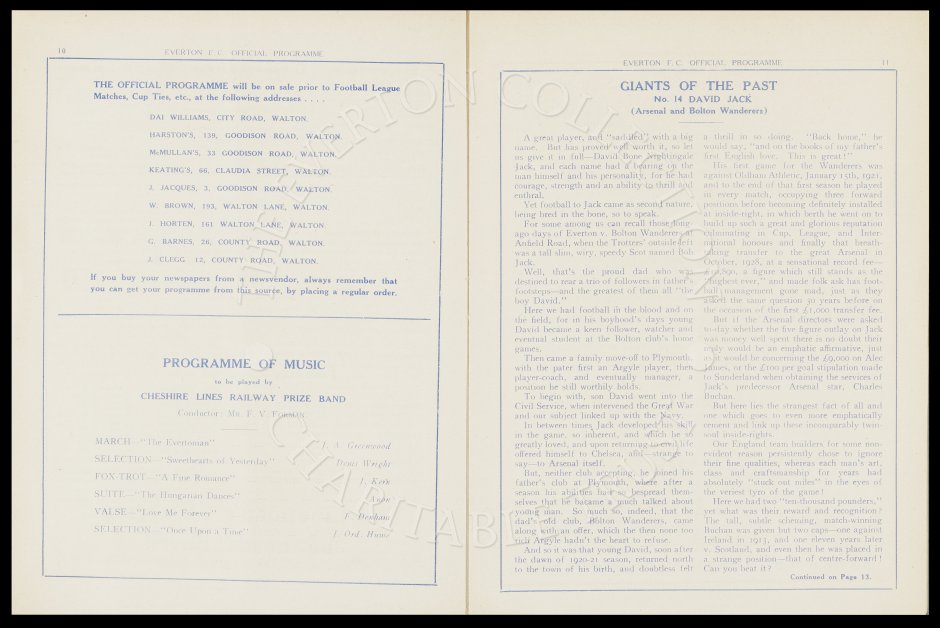 10
EVERTON F.C. OFFICIAL PROGRAMME
THE OFFICIAL PROGRAMME will be on sale prior to Football League
Matches, Cup Ties, etc., at the following addresses . . . .
DAI WILLIAMS, CITY ROAD, WALTON.
HARSTON'S, 139, GOODISON ROAD, WALTON.
McMULLAN'S, 33 GOODISON ROAD, WALTON.
KEATING'S, 66, CLAUDIA STREET, WALTON.
J. JACQUES, 3, GOODISON ROAD, WALTON.
W. BROWN, 193, WALTON LANE, WALTON.
J. HORTEN, 161 WALTON LANE, WALTON.
G. BARNES, 26, COUNTY ROAD, WALTON.
J. CLEGG 12, COUNTY ROAD, WALTON.
If you buy your newspapers from a newsvendor, always remember that
you can get your programme from this source, by placing a regular order.
PROGRAMME OF MUSIC
to be played by
CHESHIRE LINES RAILWAY PRIZE BAND
Conductor: MR. F. V. FORMAN.
MARCH—"The Evertonian" J. A. Greenwood
SELECTION—"Sweethearts of Yesterday" Denis Wright
FOX-TROT—"A Fine Romance" J. Kern
SUITE—"The Hungarian Dances" Anon
VALSE—"Love Me Forever" F. Dexham
SELECTION—"Once Upon a Time" J. Ord. Hume
EVERTON F.C. OFFICIAL PROGRAMME
11
GIANTS OF THE PAST
No. 14 DAVID JACK
(Arsenal and Bolton Wanderers)
A great player, and "saddled" with a big
name. But has proved well worth it, so let
us give it in full—David Bone Nightingale
Jack, and each name had a bearing on the
man himself and his personality, for he had
courage, strength and an ability to thrill and
enthral.
Yet football to Jack came as second nature,
being bred in the bone, so to speak.
For some among us can recall those long-
ago days of Everton v. Bolton Wanderers at
Anfield Road, when the Trotters' outside-left
was a tall slim, wiry, speedy Scot named Bob
Jack.
Well, that's the proud dad who was
destined to rear a trio of followers in father's
footsteps—and the greatest of them all "the
boy David."
Here we had football in the blood and on
the field, for in his boyhood's days young
David became a keen follower, watcher and
eventual student at the Bolton club's home
games.
Then came a family move-off to Plymouth,
with the pater first an Argyle player, then
player-coach, and eventually manager, a
position he still worthily holds.
To begin with, son David went into the
Civil Service, when intervened the Great War
and our subject linked up with the Navy.
In between times Jack developed his skill
in the game, so inherent, and which he so
greatly loved, and upon returning to civil life
offered himself to Chelsea, and—strange to
say—to Arsenal itself.
But, neither club accepting, he joined his
father's club at Plymouth, where after a
season his abilities had so bespread them-
selves that he became a much talked about
young man. So much so, indeed, that the
dad's old club, Bolton Wanderers, came
along with an offer, which the then none too
rich Argyle hadn't the heart to refuse.
And so it was that young David, soon after
the dawn of 1920-21 season, returned north
to the town of his birth, and doubtless felt
a thrill in so doing. "Back home," he
would say, "and on the books of my father's
first English love. This is great!"
His first game for the Wanderers was
against Oldham Athletic, January 15th, 1921,
and to the end of that first season he played
in every match, occupying three forward
positions before becoming definitely installed
at inside-right, in which berth he went on to
build up such a great and glorious reputation
culminating in Cup, League, and Inter-
national honours and finally that breath-
taking transfer to the great Arsenal in
October, 1928, at a sensational record fee—
£10,890, a figure which still stands as the
"highest ever," and made folk ask has foot-
ball management gone mad, just as they
asked the same question 30 years before on
the occasion of the first £1,000 transfer fee.
But if the Arsenal directors were asked
to-day whether the five figure outlay on Jack
was money well spent there is no doubt their
reply would be an emphatic affirmative, just
as it would be concerning the £9,000 on Alec
James, or the £100 per goal stipulation made
to Sunderland when obtaining the services of
Jack's predecessor Arsenal star, Charles
Buchan.
But here lies the strangest fact of all and
one which goes to even more emphatically
cement and link up these incomparably twin-
soul inside-rights.
Our England team builders for some non-
evident reason persistently chose to ignore
their fine qualities, whereas each man's art,
class and craftsmanship for years had
absolutely "stuck out miles" in the eyes of
the veriest tyro of the game!
Here we had two "ten-thousand pounders,"
yet what was their reward and recognition?
The tall, subtle scheming, match-winning
Buchan was given but two caps—one against
Ireland in 1913, and one eleven years later
v. Scotland, and even then he was placed in
a strange position—that of centre-forward!
Can you beat it?
Continued on Page 13.